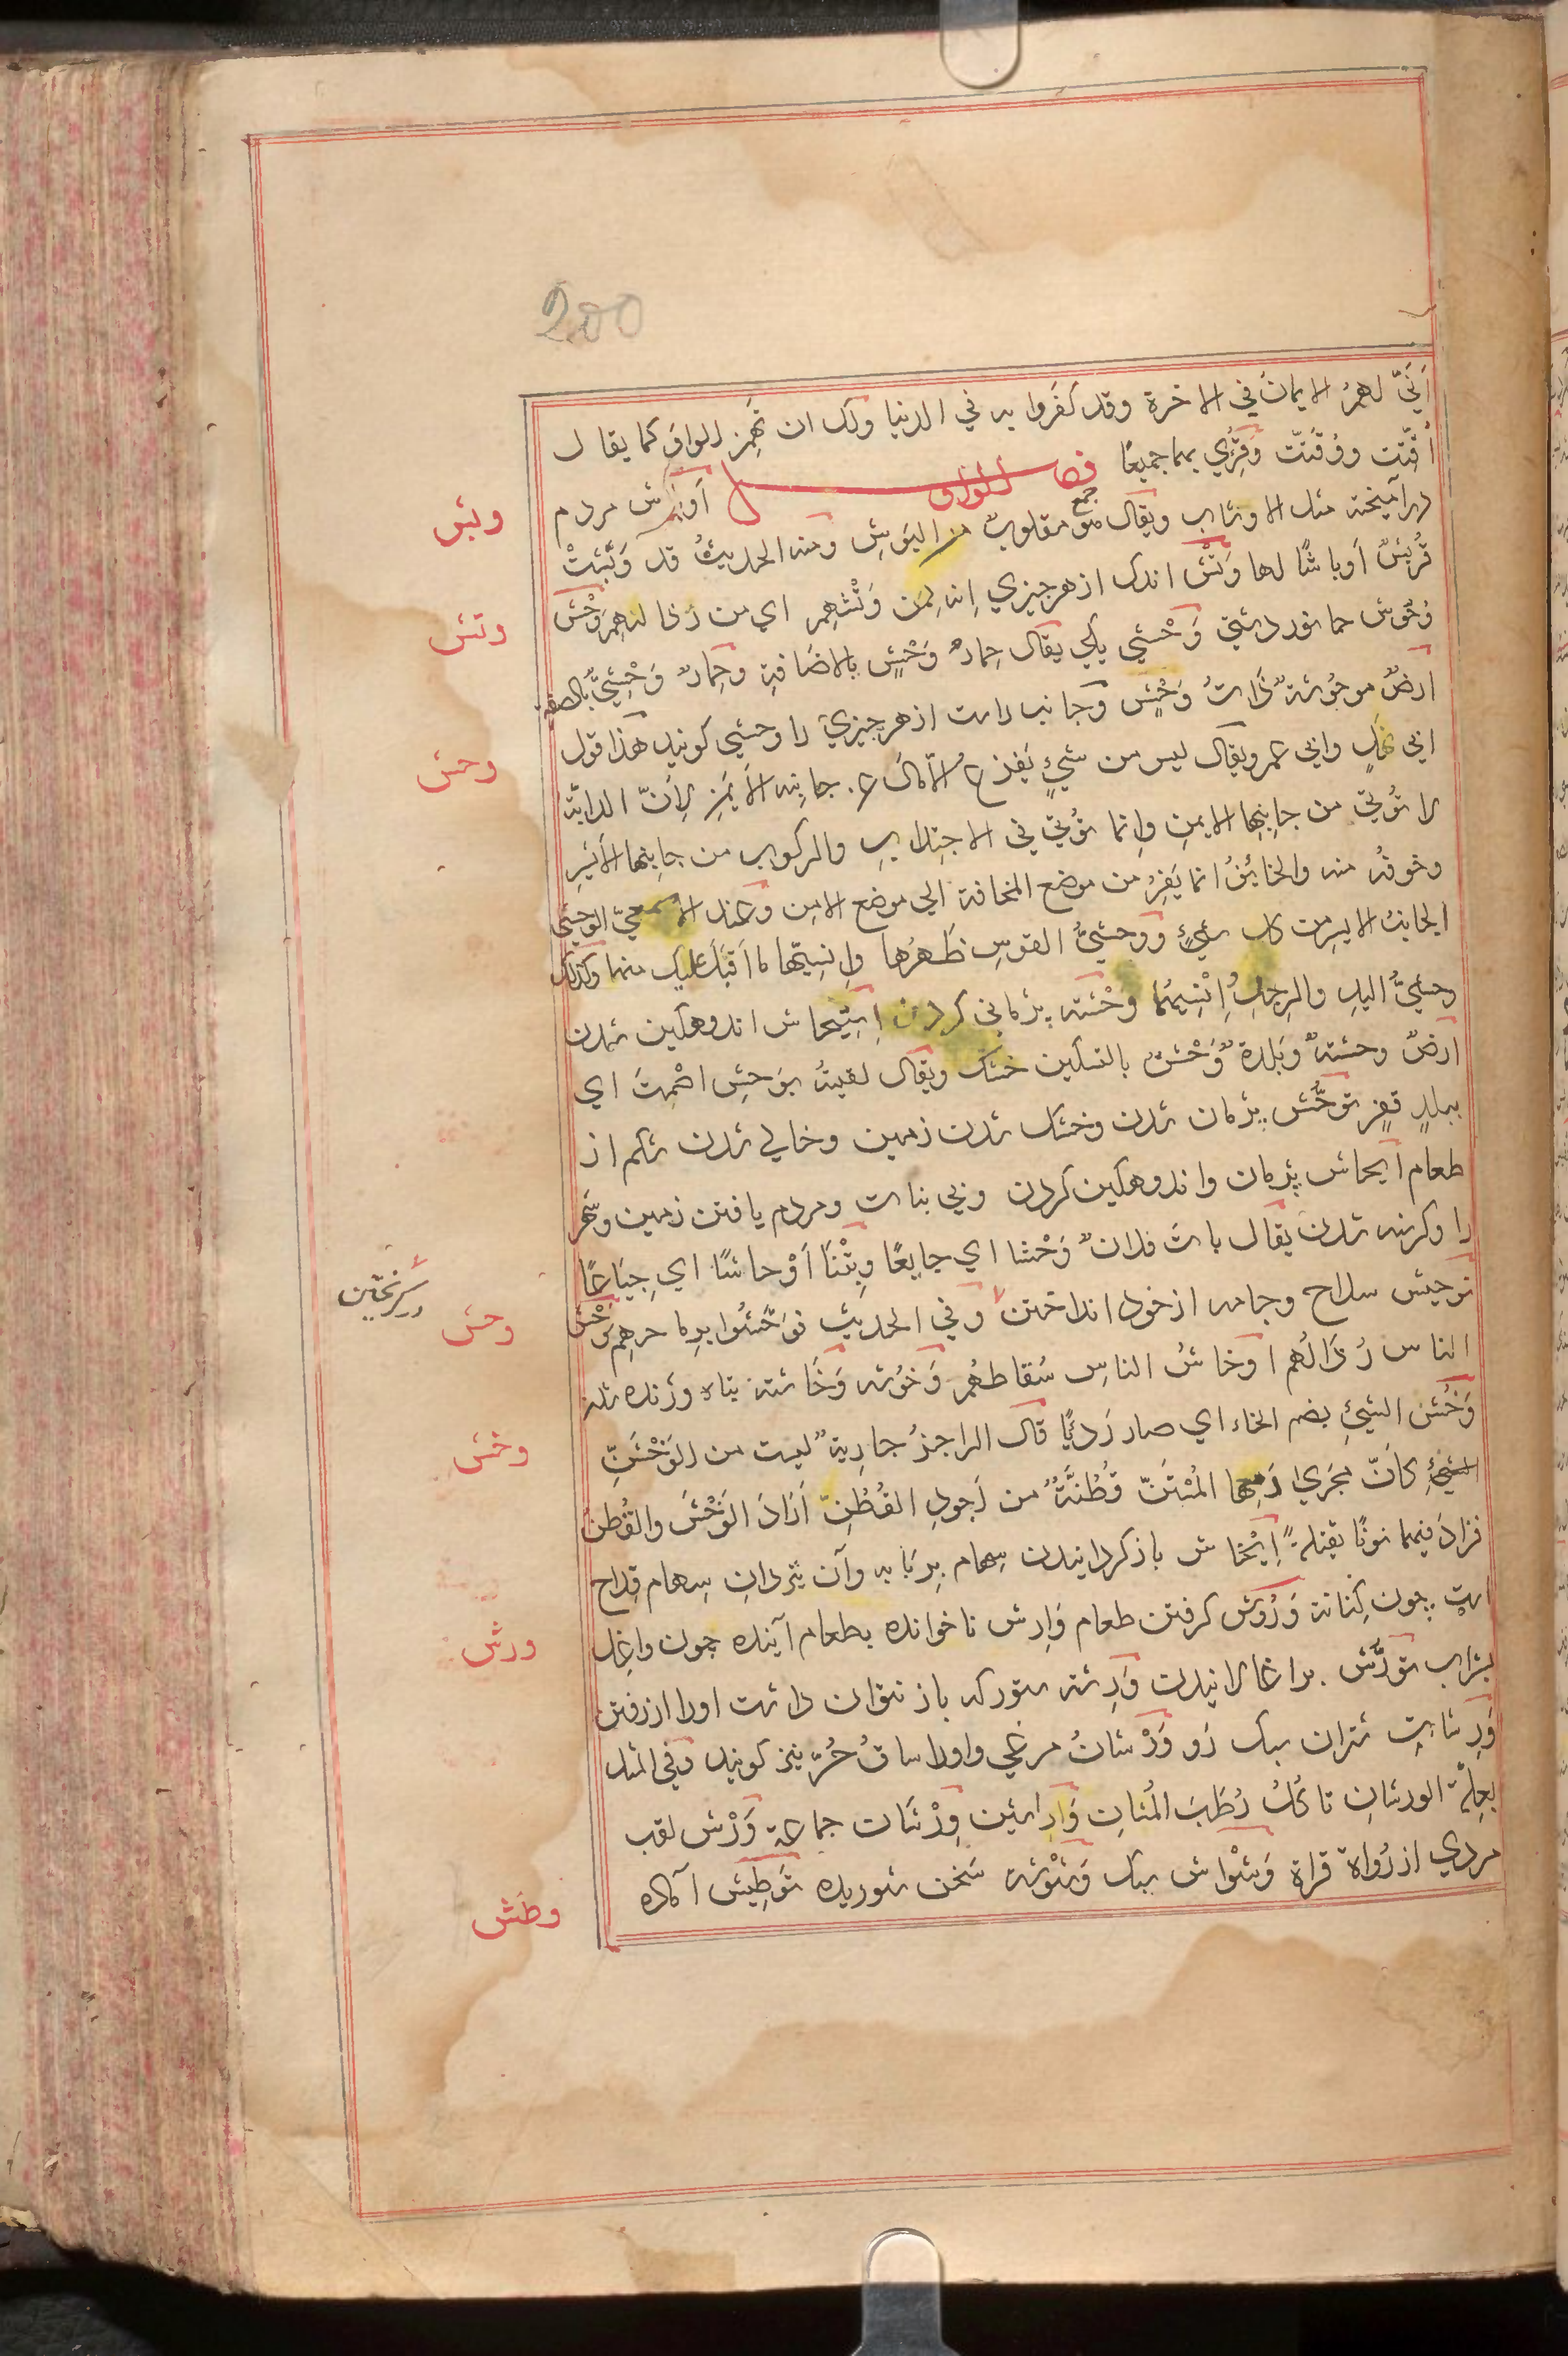 200
اَنّيَ لهمُ الايمانُ في الاخرة وقد كفَروا به في الدنيا ولك ان تهمز الواوَ كما يقال
اُقِّتت ووُقِّتَتْ وقُرِئ بهما جميعًا فصل الواو اَوباش مردم
درآميخته مثل الاوشاب ويقال هو جمع مقلوبٌ من البَوشِ ومنه الحديثُ قد وَبَّشَتْ
قُريشٌ اَوباشًا لها وَتْش اندك از هرچيزي اِنه لمن وَتْشهم اي من رُذالهم وَحْش
وُحُوش جانور دشتي وَحْشي يكي يقال حِمارُ وَحْشٍ بالاضافةِ وحِمارٌ وَحْشِيٌّ بالصفة
ارضٌ موحُوشةٌ ذاتُ وَحْشٍ وجانب راست از هرچيزي را وحشي كويند هذا قول
ابي زيدٍ وابي عمرو يقال ليس من شيءٍ يَفزع الّا مال علي جانبه الاَيمَنِ لاِنّ الدابّة
لا تؤتي من جانِبِها الايمن وانما تؤتي في الاحتلابِ والركوب من جانبها الاَيسرِ
وخوفُه منه والخائفُ انما يَفِرُّ من موضع المخافة الي موضع الامن وعند الاصمعيّ الوحشي
الجانبُ الايسر من كل شيءٍ ووحشيُّ القوسِ ظَهرُها واِنسِيّها ما اَقبَل عليك منها وكذلك
وحشيُّ اليدِ والرِجلِ اِنْسِيهُما وَحْشَة پژماني كردن اِستِيحاش اندوهكين شدن
ارضٌ وحشةٌ وبَلدةٌ وَحْشٌ بالتسكين خشك ويقال لقيتُه بوَحشِ اصْمِتَ اي
ببلدٍ قفرٍ توحُّش پژمان شدن وخشك شدن زمين وخالي شدن شكم از
طعام ايحاش پژمان واندوهكين كردن وبي بنات ومردم يافتن زمين وشهر
را وكرسنه شدن يقال باتَ فلانٌ وَحْشًا اي جايعًا وبِتْنا اَوْحاشًا اي جِياعًا
توحيش سلاح وجامه از خود انداختن وفي الحديث فوَحَّشُوا برماحِهِم وَخْش
الناس رُذالُهم اوخاشُ الناسِ سُقاطهُم وَخُوشة وَخاشة تباه وژنده شدن
وَخُشَ الشيئ بضم الخاء اي صار رَدئيًا قال الراجزُ جارِيةٌ ليست من الوَخْشَنِّ
كاَنّ مَجرَي دَمعِها المُسْتَنّ قُطُنَّةٌ من اَجودِ القُطُنِّ اَرادَ الوَخْشَ والقُطنَ
فزادَ فيهما نونًا ثقيلةً اِيْخاش بازكردانيدن سهام برِبابه وآن تيردانِ سهام قداح
است چون كِنانة وَرُوش كرفتن طعام وَارِش ناخوانده بطعام آينده چون واغِل
بشراب تورّش براغالانيدن وَرِشة ستور كه باز نتوان داشت اورا از رفتن
وَرِشات شتران سبك رَو وَرْشانُ مرغي واورا ساقُ حُرّ نيز كويند وفي المثل
بعِلّةِ الورشانِ تاكل رُطَبَ المُشانِ وَراشين وِرْشان جماعة وَرْش لقب
مردي از رُواة قراة وَشْواش سبك وَشْوَشة سَخن شوريده تَوطِيش آماده
وبش
وتش
وحش
وحش
وخش
ورش
وطش